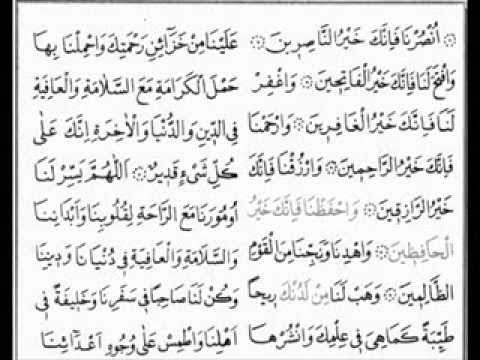 ۞ اُنْصُرْنَا فَاِنَّكَ خَيْرُ النَّاصِرِينَ ۞
وَافْتَحْ لَنَا فَاِنَّكَ خَيْرُ الْفَاتِحِينَ ۞ وَاغْفِرْ
لَنَا فَاِنَّكَ خَيْرُ الْغَافِرِينَ ۞ وَارْحَمْنَا
فَاِنَّكَ خَيْرُ الرَّاحِمِينَ ۞ وَارْزُقْنَا فَاِنَّكَ
خَيْرُ الرَّازِقِينَ ۞ وَاحْفَظْنَا فَاِنَّكَ خَيْرُ
الْحَافِظِينَ ۞ وَاهْدِنَا وَنَجِّنَا مِنَ الْقَوْمِ
الظَّالِمِينَ ۞ وَهَبْ لَنَا مِنْ لَدُنْكَ رِيحاً
طَيِّبَةً كَمَا هِيَ فِي عِلْمِكَ وَانْشُرْهَا
عَلَيْنَا مِنْ خَزَائِنِ رَحْمَتِكَ وَاحْمِلْنَا بِهَا
حَمْلَ الْكَرَامَةِ مَعَ السَّلَامَةِ وَالْعَافِيَةِ
فِي الدِّينِ وَالدُّنْيَا وَالْاٰخِرَةِ اِنَّكَ عَلٰى
كُلِّ شَيْءٍ قَدِيرٌ ۞ اَللّٰهُمَّ يَسِّرْ لَنَا
اُمُورَنَا مَعَ الرَّاحَةِ لِقُلُوبِنَا وَاَبْدَانِنَا
وَالسَّلَامَةِ وَالْعَافِيَةِ فِي دُنْيَانَا وَدِينِنَا
وَكُنْ لَنَا صَاحِبًا فِي سَفَرِنَا وَخَلِيفَةً فِي
اَهْلِنَا وَاطْمِسْ عَلٰى وُجُوهِ اَعْدَائِنَا